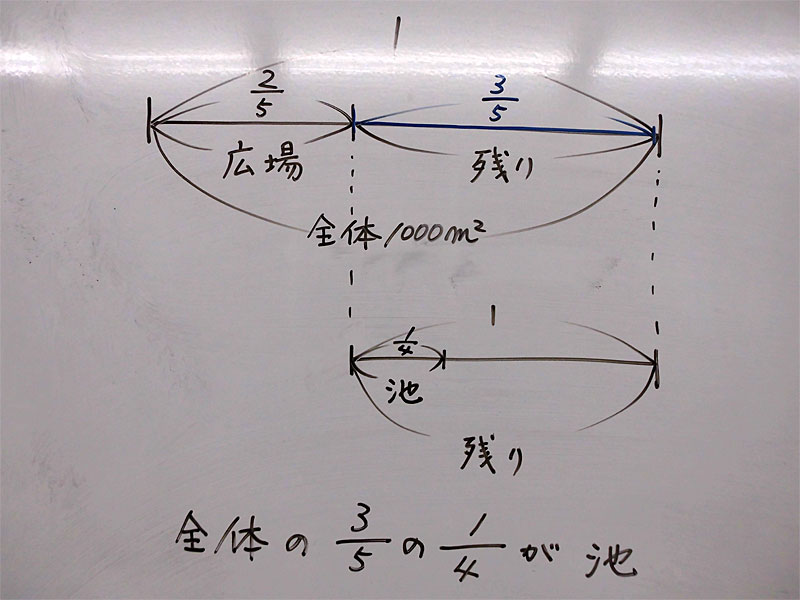 1
2/5 3/5
広場 残り
全体 1000m²
1
1/4
池
残り
全体の 3/5 の 1/4 が 池